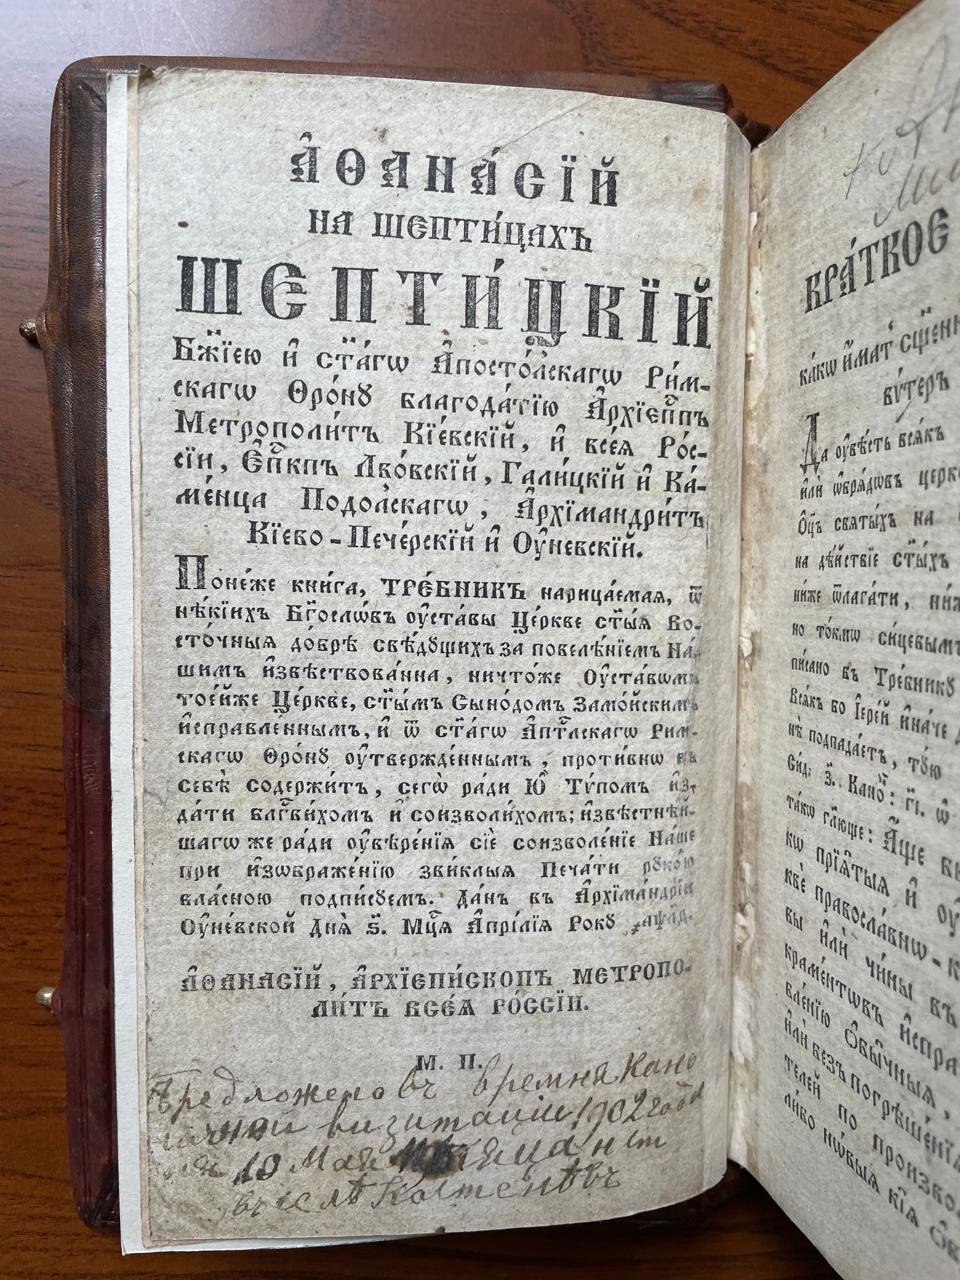 А҆ѳана́сїй
на Шепти́цахъ
Шепти́цкїй
Бж҃їею и҆ ст҃а́гѡ А҆посто́лскагѡ Ри́м-
скагѡ Ѳро́нꙋ благода́тїю А҆рхїепⷭ҇пъ
Метрополи́тъ Кі́евскїй, и҆ всеѧ̀ Рѡ́с-
сїи, Е҆пⷭ҇кпъ Лво́вскїй, Гали́цкїй и҆ Ка-
ме́нца Подо́лскагѡ, А҆рхїмандри́тъ
Кїево-Пече́рскїй и҆ Оу҆невскїй.
Поне́же кни́га, тре́бникъ нарица́емая, ѿ
нѣ́кїихъ Бг҃осло́въ оу҆ста́вы Це́ркве ст҃ы́ѧ Во-
сто́чныѧ до́брѣ свѣ́дꙋщихъ за повелѣ́нїемъ На́-
шимъ и҆звѣствова́нна, ничто́же Оу҆ста́вѡмъ
тоѐйже Це́ркве, ст҃ы́мъ Сѷно́домъ Замо́йскимъ
и҆спра́вле́ннымъ, и҆ ѿ ст҃а́гѡ А҆пⷭ҇тлскагѡ Рим-
скагѡ Ѳро́нꙋ оу҆твержде́ннымъ, проти́вно въ
себѣ̀ содержи́тъ, сегѡ̀ ра́ди Ю҆̀ Тѵ́помъ и҆з-
да́ти благⷭ҇ви́хомъ и҆ соизво́лихомъ; и҆звѣстнѣ́й-
шагѡ же ра́ди оу҆вѣре́нїѧ сїѐ соизволе́нїе На́ше
при и҆зѡбраже́нїю зви́клыѧ Печа́ти рꙋко́ю
вла́сною подпи́сꙋемъ. Да́нъ въ А҆рхїма́ндрїи
Оу҆не́вской Днѧ̀ ѕ҃. Мцⷭ҇а А҆прі́лїѧ Рокꙋ
А҆ѳанасїй, а҆рхїепи́скопъ метропо-
ли́тъ всеѧ̀ рѡ́ссїи.
М. П.
Предложено въ времня Кано
ничной визитаціи 1902 года
дня 10 Мая
въ селѣ
Кра́ткое
ка́кѡ и҆́мат
Да оу҆вѣ́сть всѧ́къ
и҆лѝ ѡ҆брѧ́довъ церк
Оц҃ъ святы́хъ на
на дѣ́йствїе ст҃ы́хъ
ни́же ѿлага́ти, ни́ж
но то́кмѡ си́цевымъ
пи́сано въ Тре́бникꙋ
Всѧ́къ бо І҆ере́й и҆на́че
нъ подпада́етъ, то́ю
та́кѡ гл҃юще: А҆́ще
кѡ прїѧ́тыѧ и҆
кве правосла́внѡ-к
вы и҆лѝ чи́ны въ
кра́ментѡвъ и҆спра
вле́нїю ѡ҆бы́чныѧ,
и҆лѝ безъ погрѣше́нїѧ
телей по произво
ли́бо нѡ́выѧ кі́ѧ